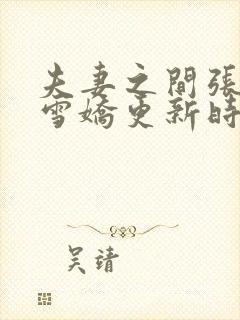 夫妻之間張
雪嬌更新時
吴靖